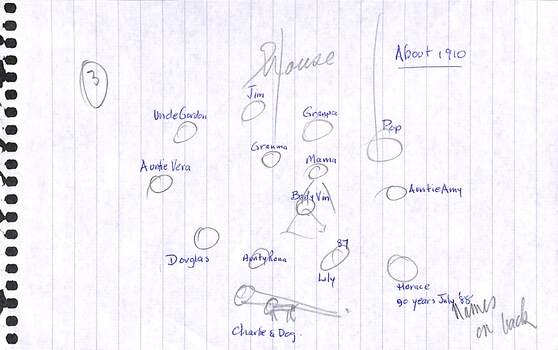 House
About 1910
3
Jim
Uncle Gordon
Grampa
Pop
Granma
Mama
Auntie Vera
Baby Vin
Auntie Amy
87
Douglas
Aunty Rona
Lily
Horace
90 years July '88
Charlie & Dog.
Names
on back